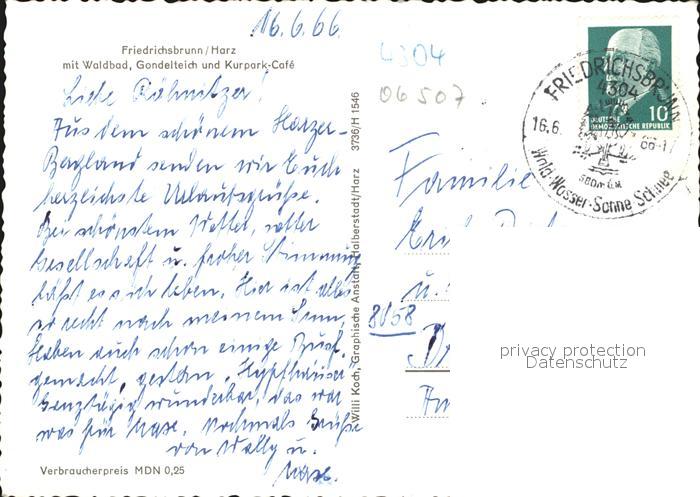 16.6.66
Friedrichsbrunn/Harz
mit Waldbad, Gondelteich und Kurpark-Café
Liebe Röhnitzer!
Aus dem schönem Harzer-
Bergland senden wir Euch
herzlichste Urlaubsgrüße.
Bei schönstem Wetter, netter
Gesellschaft u. froher Stimmung
läßt es sich leben. Hier ist alles
so recht nach meinem Sinn,
Haben auch schon einige
gemacht, gestern, Kyffhäuser
Ganztägig wunderbar, das war
was für Nochmals Grüße
von Wally u.
Verbraucherpreis MDN 0,25
Willi Koch, Graphische Anstalt, Halberstadt/Harz 3736/H 1546
4304
06507
DEUTSCHE
DEMOKRATISCHE REPUBLIK
10
FRIEDRICHSBRUNN
4304
16.6. 66-17
580m ü.M
Wald-Wasser-Sonne-Schnee
Familie
u.
8058
privacy protection
Datenschutz